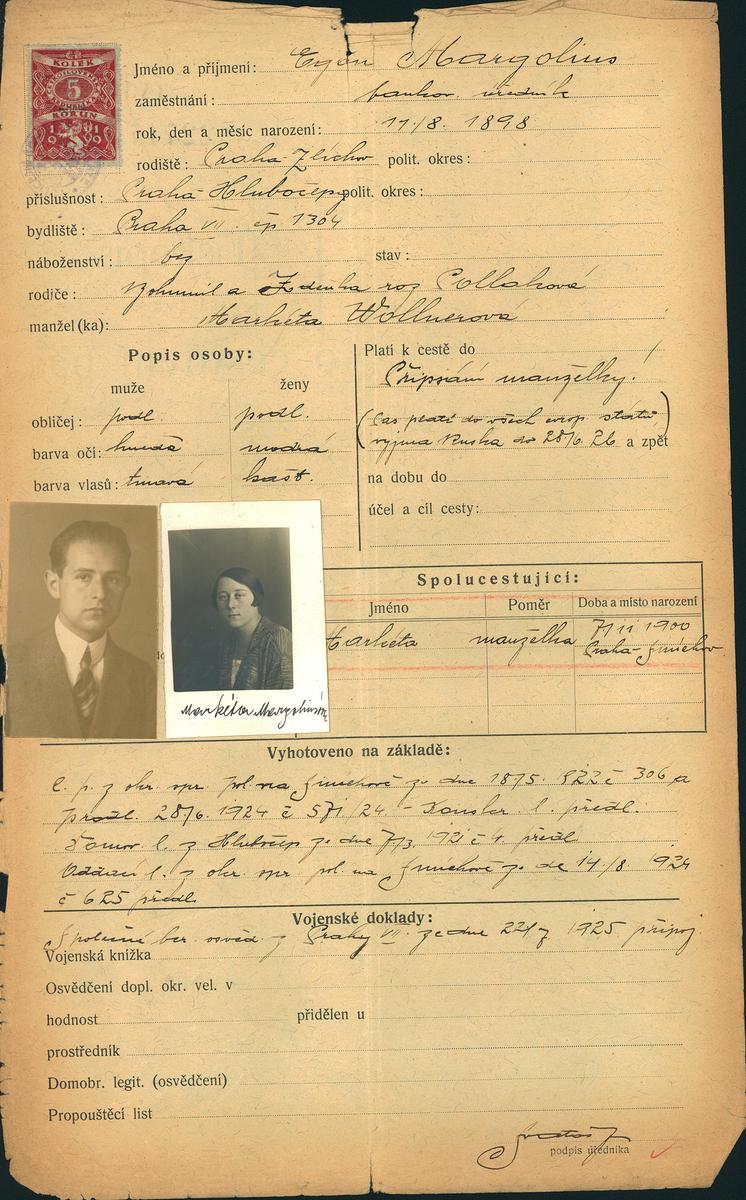 KOLEK
5
KORUN
1919
Jméno a příjmení: Egon Margolius
zaměstnání: bankov. úředník
rok, den a měsíc narození: 11./8. 1898
rodiště: Praha-Zlíchov polit. okres:
příslušnost: Praha-Hlubočepy polit. okres:
bydliště: Praha VII. čp 1304
náboženství: bez stav:
rodiče: Bohumil a Zdenka roz Pollaková
manžel(ka): Markéta Wollnerová
Popis osoby:
muže ženy
obličej: podl. podl.
barva očí: hnědá modrá
barva vlasů: tmavá kašt.
Platí k cestě do
Připsání manželky.
(Cas platí do všech evrop. států
vyjma Ruska do 28/6. 26 a zpět)
na dobu do
účel a cíl cesty:
Spolucestující:
Jméno Poměr Doba a místo narození
Markéta manželka 7/11 1900
Praha-Smíchov
Markéta Margoliusová
Vyhotoveno na základě:
C. p. z okr. spr. pol. na Smíchově ze dne 18/5. 1922 č 306 a
prodl. 28/6. 1924 č 571/24 - l. předl.
Domov. l. z Hlubočep ze dne 7/3 192 č 4. předl
Oddací l. z okr. spr. pol. na Smíchově ze dne 14/8 1924
č 625 předl.
Vojenské doklady:
Společné ber. osvěd. z Prahy VII. ze dne 1925 připoj.
Vojenská knížka
Osvědčení dopl. okr. vel. v
hodnost přidělen u
prostředník
Domobr. legit. (osvědčení)
Propouštěcí list
podpis úředníka